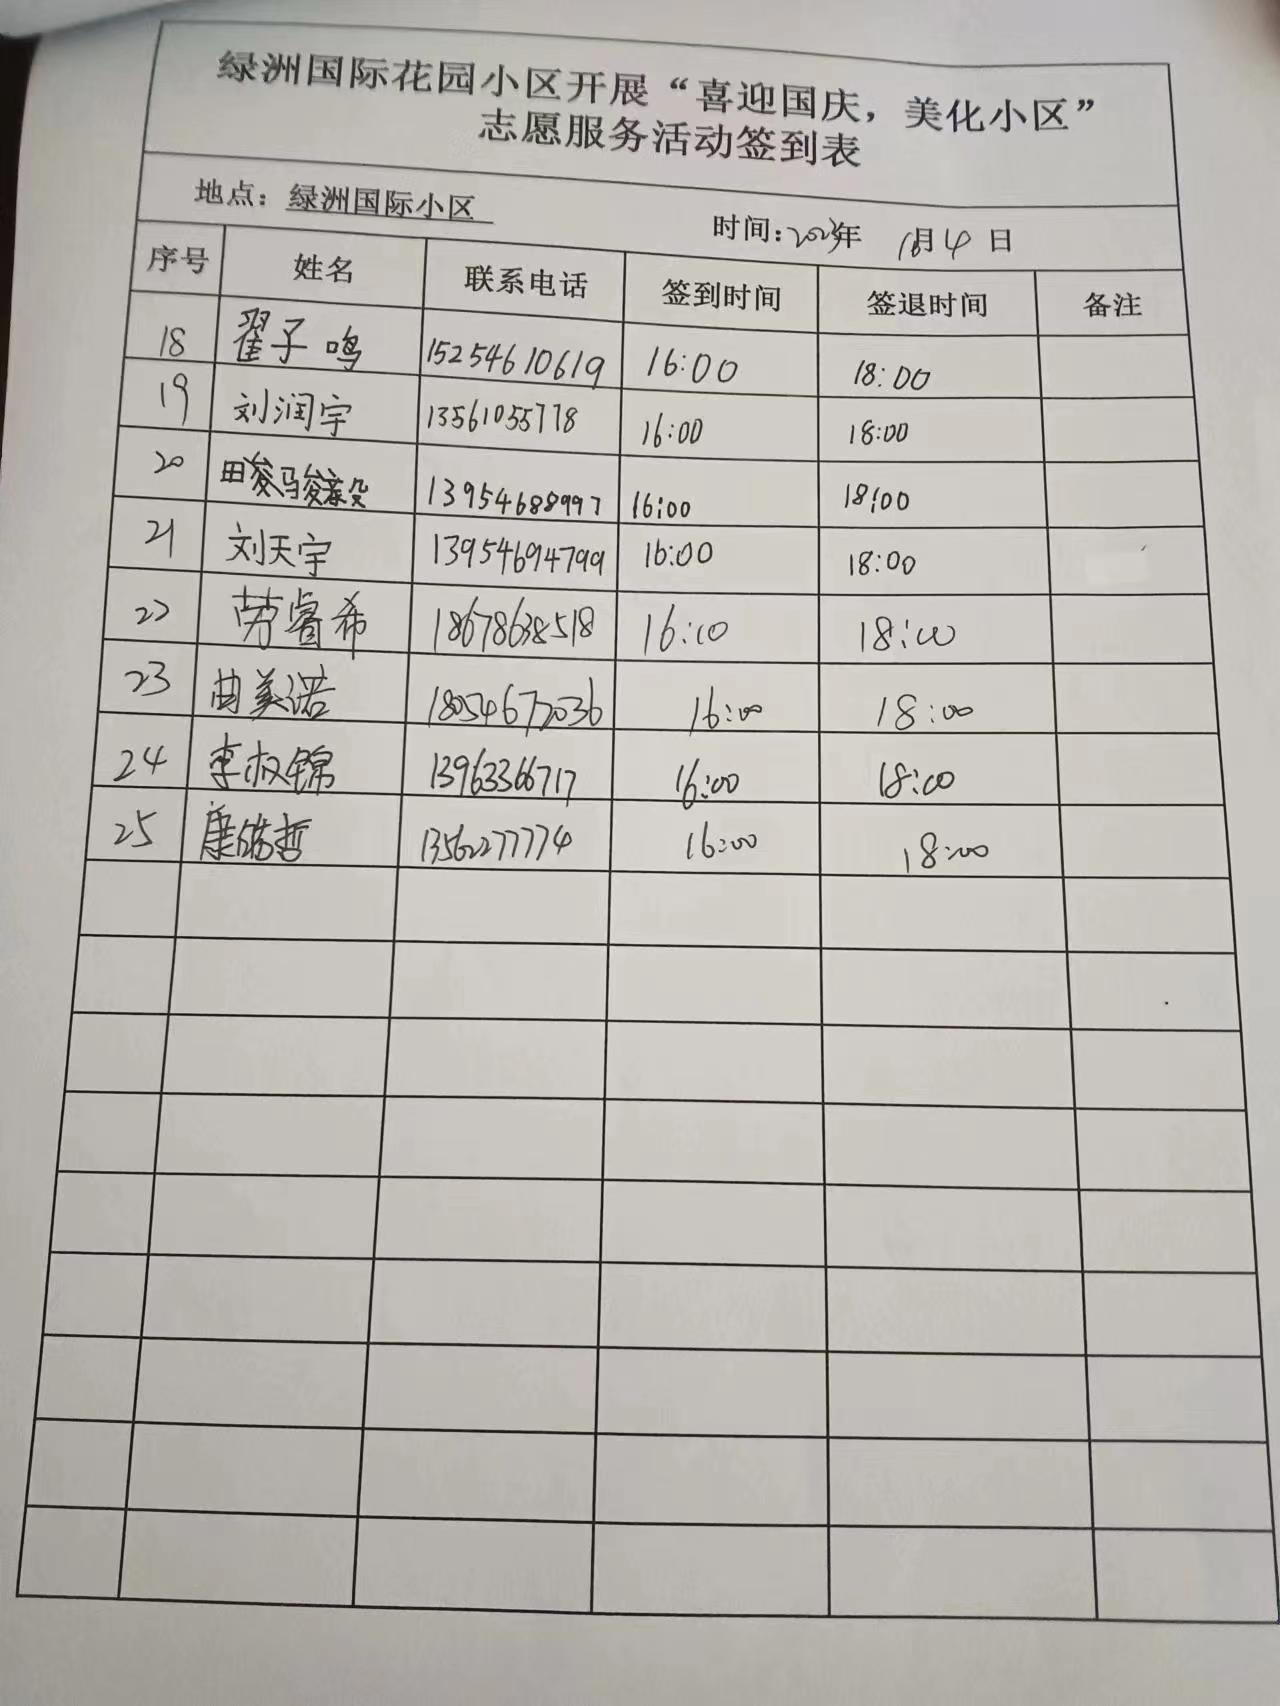 绿洲国际花园小区开展“喜迎国庆，美化小区”
志愿服务活动签到表
地点：绿洲国际小区 时间：2023年 10月4日
序号 姓名 联系电话 签到时间 签退时间 备注
18 翟子鸣 15254610619 16:00 18:00
19 刘润宇 13561055778 16:00 18:00
20 田骏马骏毅 13954688997 16:00 18:00
21 刘天宇 13954694799 16:00 18:00
22 劳睿希 18678638518 16:00 18:00
23 曲美诺 18054672036 16:00 18:00
24 李权锦 13963366717 16:00 18:00
25 康皓哲 13562277774 16:00 18:00